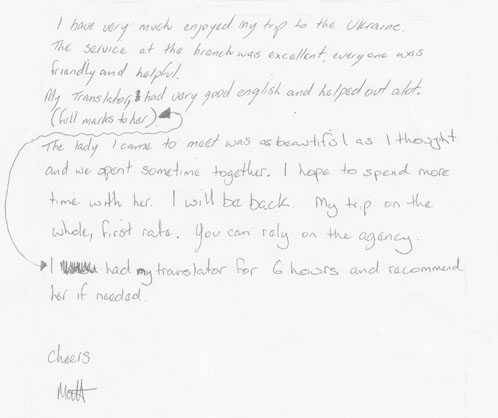 I have very much enjoyed my trip to the Ukraine.
The service at the branch was excellent, everyone was
friendly and helpful.
My Translator, had very good english and helped out alot.
(full marks to her).
The lady I came to meet was as beautiful as I thought
and we spent sometime together. I hope to spend more
time with her. I will be back. My trip on the
whole, first rate. You can rely on the agency.
I had my translator for 6 hours and recommend
her if needed.
Cheers
Matt